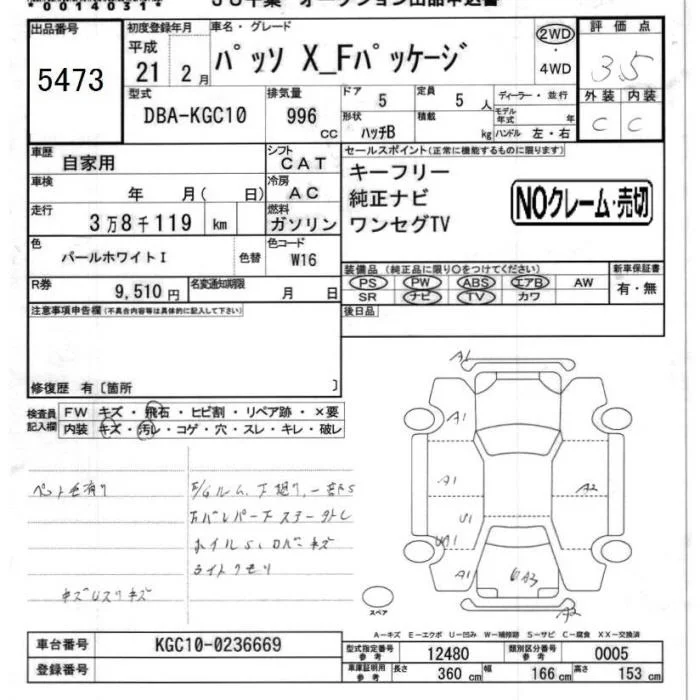 *00140311*
JU千葉 オークション出品申込書
出品番号 初度登録年月 車名・グレード 評価点
5473 平成 21 2月 パッソ X_Fパッケージ 2WD・4WD 3.5
外装 内装
C C
型式 排気量 ドア 定員 ディーラー・並行
DBA-KGC10 996 cc 5 5人 モデル年式 年
形状 積載
ハッチB kg ハンドル 左・右
車歴 シフト セールスポイント(正常に機能するものに限ります)
自家用 CAT キーフリー
車検 冷房 純正ナビ
年 月( 日) AC ワンセグTV
NOクレーム・売切
走行 燃料
3万8千119 km ガソリン
色 色コード
パールホワイトI 色替 W16
装備品(純正品に限り○をつけてください) 新車保証書
PS PW ABS エアB AW 有・無
SR ナビ TV カワ
R券 名変通知期限
9,510円 月 日
注意事項申告欄(不具合内容等は具体的に記入して下さい) 後日品
修復歴 有〔箇所 〕
検査員記入欄 FW キズ・飛石・ヒビ割・リペア跡・×要
内装 キズ・汚レ・コゲ・穴・スレ・キレ・破レ
A1
A1
A1 A2
U1
A1
A3
A2
ペット毛有り
ホイルS
ライトクモリ
スペア
A-キズ E-エクボ U-凹み W-補修跡 S-サビ C-腐食 XX-交換済
車台番号 KGC10-0236669
登録番号
型式指定番号参考 12480 類別区分番号参考 0005
車庫証明用参考 長さ 360 cm 幅 166 cm 高さ 153 cm